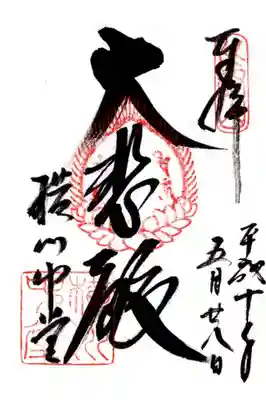 奉拝
平成十年
五月廿八日
大悲殿
横川中堂